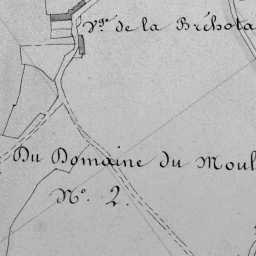 Vge de la Bréhota
Du Domaine du Moul
No. 2.